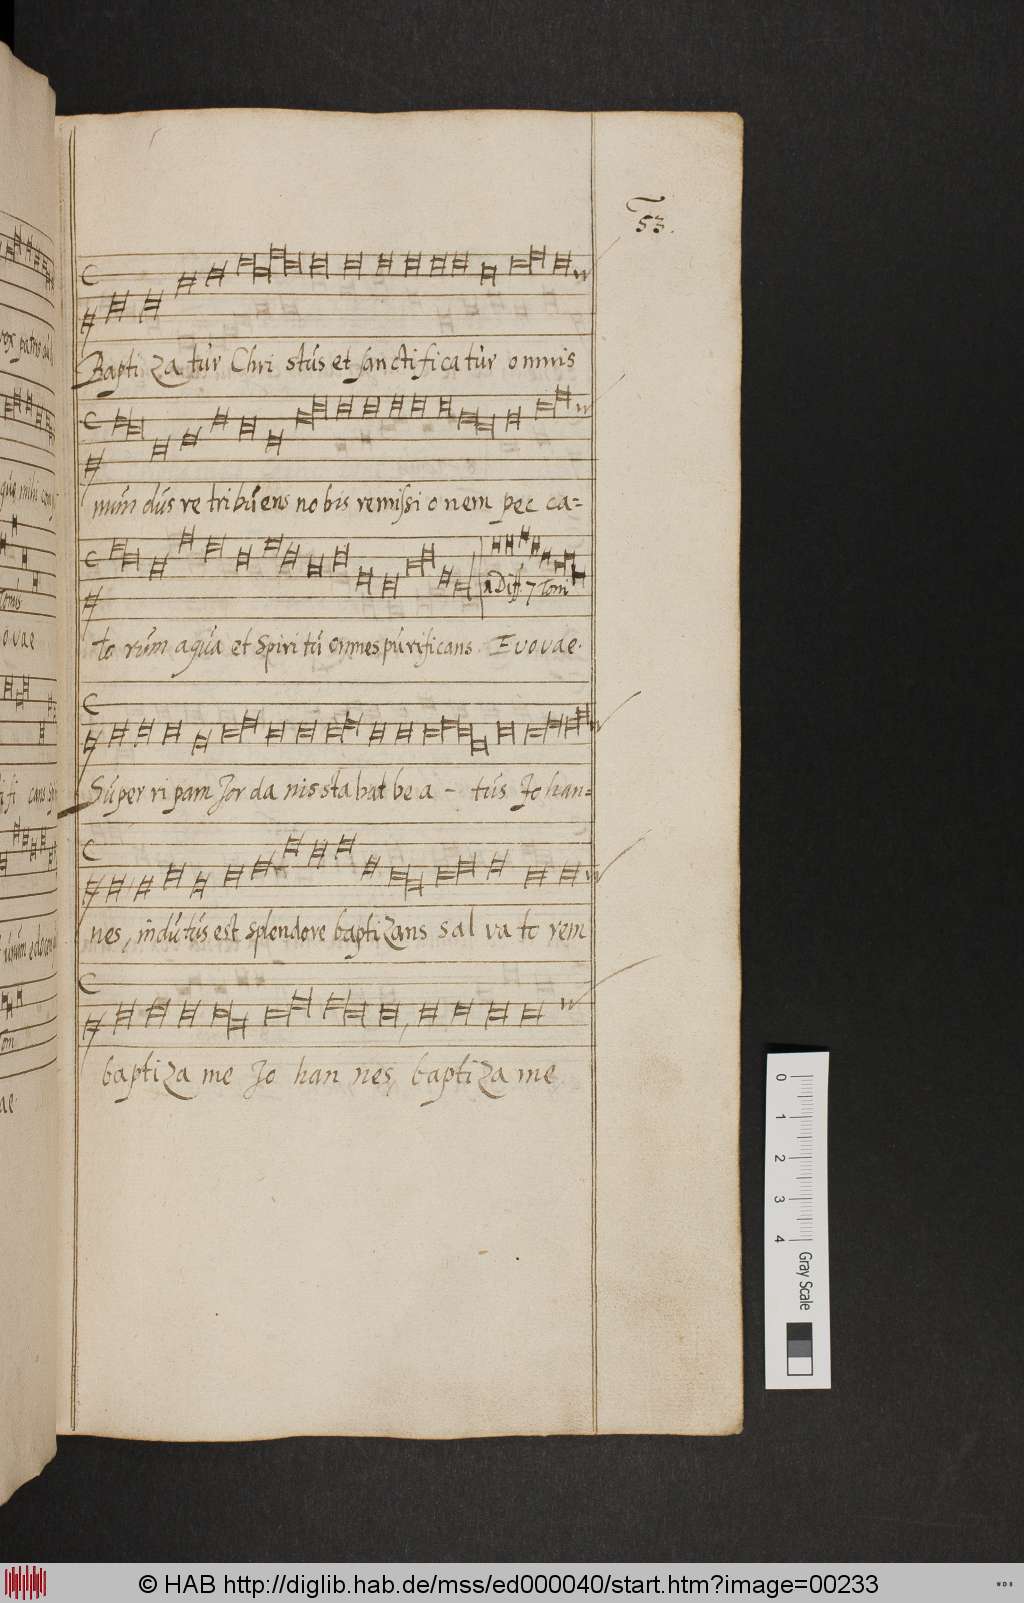 53.
Bapti za tur Chri stus et sanctifica tur omnis
mundus re tribuens nobis remissi onem pec ca=
to rum aqua et Spiri tu omnes purificans. Evovae.
1 Diff. 7 Toni
Super ri pam Jor da nis stabat be a - tus Johan=
nes, indutus est splendore baptizans sal va to rem
baptiza me Jo han nes, baptiza me
0 1 2 3 4 Gray Scale
© HAB http://diglib.hab.de/mss/ed000040/start.htm?image=00233